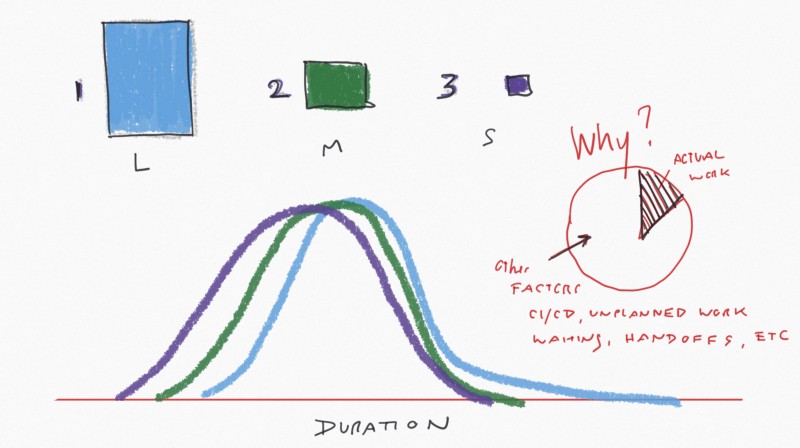 1
2
3
L
M
S
Why?
ACTUAL
WORK
Other
FACTORS
CI/CD, UNPLANNED WORK
WAITING, HANDOFFS, ETC
DURATION